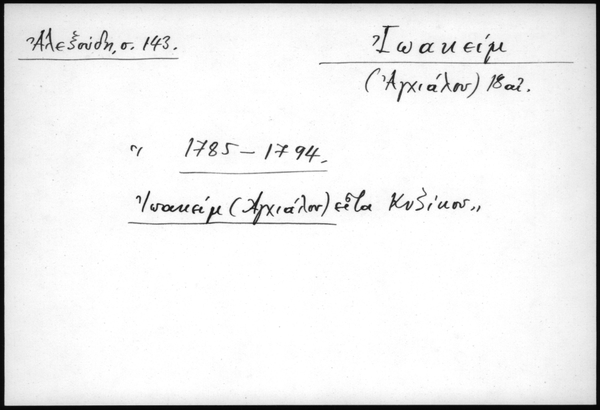 Ἀλεξούδη, σ. 143.
Ἰωακείμ
(Ἀγχιάλου) 18 αἰ.
" 1785 – 1794.
Ἰωακείμ (Ἀγχιάλου) εἶτα Κυζίκου"